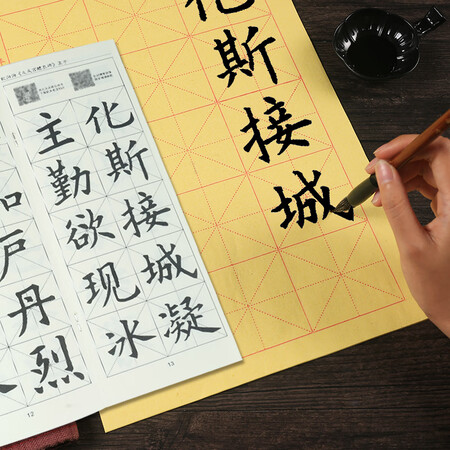 化斯接城
化斯接城凝
主勤欲现冰
户丹烈
12
13